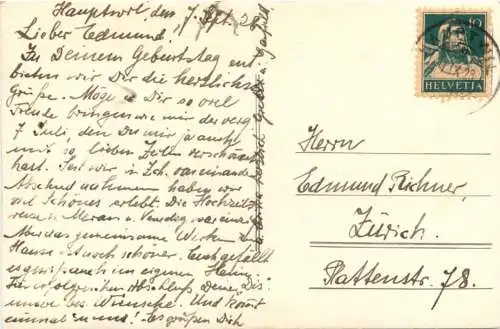 Hauptwil den 7. Sept. 28
Lieber Edmund!
Zu Deinem Geburtstag ent
bieten wir Dir die herzlichste
Grüße. Möge er Dir so viel
Freude bringen wie mir der verg.
7 Juli, den Du mir ja auch
mit so lieben Zeilen verschönt
hast. Seit wir in Zch. voneinander
Abschied nahmen haben wir
viel Schönes erlebt. Die Hochzeits
reise n. Meran u. Venedig war einzig
Aber das gemeinsame Wirken im
Hause ist noch schöner. Euch gefällt
es gewiss auch im eigenen Heim.
Für erfolgreichen Abschluss Deiner Dis
unsre bes. Wünsche. Und kommt
einmal zu uns! Es grüßen Dich
10
HELVETIA
Herrn
Edmund Richner,
Zürich.
Plattenstr. 78.